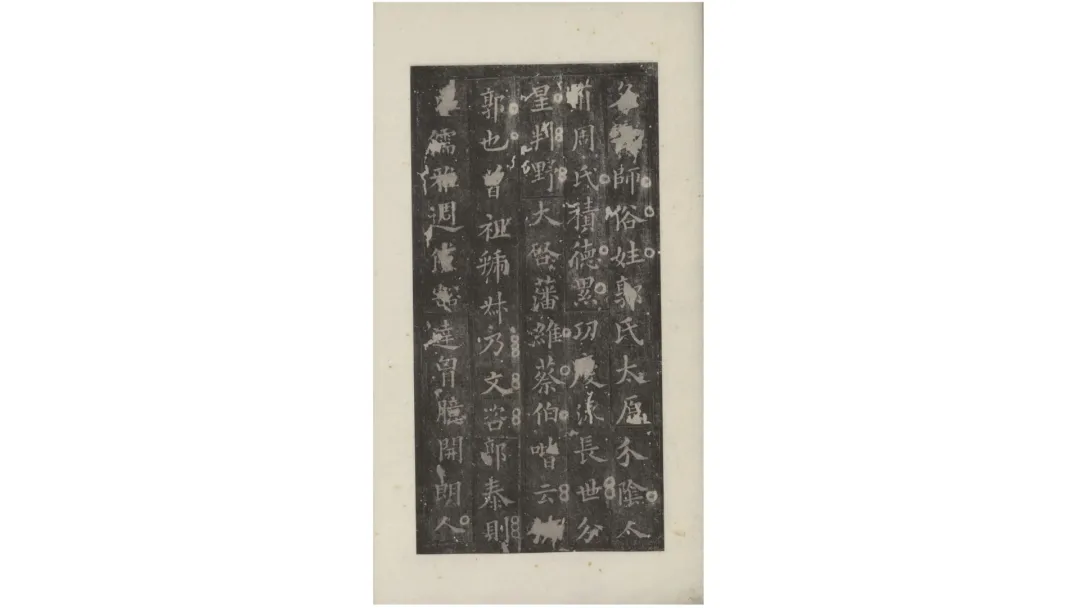 師俗姓郭氏太原介陰太
周氏積德累功慶流長世分
星判野大啓藩維蔡伯喈云
郭也曾祖號叔乃文咨郎泰則
儒雅週豁達胷臆開朗人